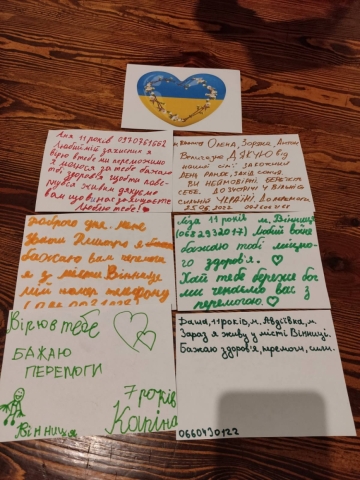 Аня 11 років 0970751662
Любий мій захисник я
вірю в тебе ми переможемо
я молюся за тебе бажаю
тобі здоров'я щоб ти
живим дякуємо
вам що ви нас захищаєте
Люблю тебе!
Олена, Зоряна,
ДЯКУЮ від
нашої сім'ї закохани
День ранок, захід сонця
ВИ НЕЙМОВІРНІ БЕРЕЖІТЬ
СЕБЕ. ДО ЗУСТРІЧІ У ВІЛЬНІЙ
СИЛЬНІЙ УКРАЇНІ.
2022
Доброго дня. мене
звати я
бажаю вам
я з міста Вінниця
мій номер телефону
Ліза 11 років м. Вінниця
(0682932017) Любий воїне
бажаю тобі міцного
здоров'я.
Хай тебе береже бог
ми чекаємо вас з
перемогою.
Вірю в тебе
БАЖАЮ
ПЕРЕМОГИ
7 років
Каріна
Вінниця
Даша, 11 років, м. Авдіївка, м.
Зараз я живу у місті Вінниці.
Бажаю здоров'я, перемоги, сили.
0660430122